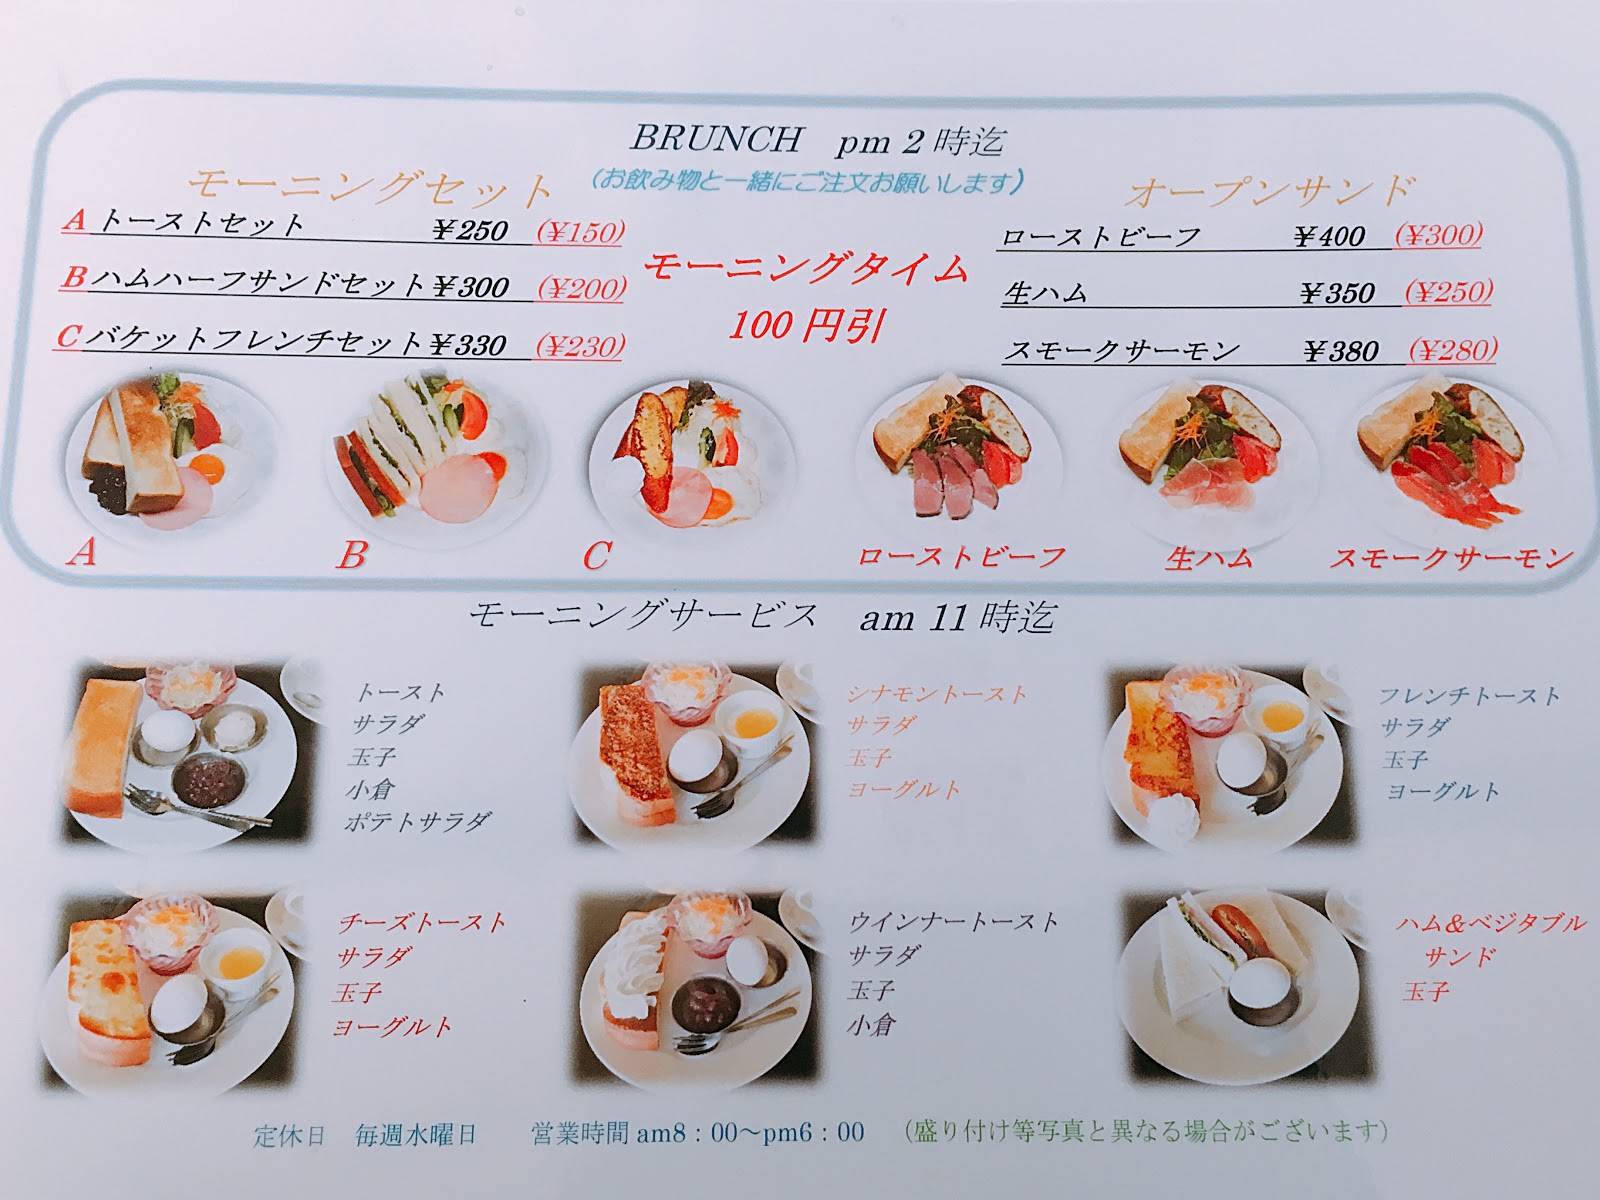 BRUNCH pm 2 時迄
(お飲み物と一緒にご注文お願いします)
モーニングセット
A トーストセット ¥250 (¥150)
B ハムハーフサンドセット ¥300 (¥200)
C バケットフレンチセット ¥330 (¥230)
モーニングタイム
100 円引
オープンサンド
ローストビーフ ¥400 (¥300)
生ハム ¥350 (¥250)
スモークサーモン ¥380 (¥280)
A
B
C
ローストビーフ
生ハム
スモークサーモン
モーニングサービス am 11 時迄
トースト
サラダ
玉子
小倉
ポテトサラダ
シナモントースト
サラダ
玉子
ヨーグルト
フレンチトースト
サラダ
玉子
ヨーグルト
チーズトースト
サラダ
玉子
ヨーグルト
ウインナートースト
サラダ
玉子
小倉
ハム&ベジタブル
サンド
玉子
定休日 毎週水曜日 営業時間 am8：00～pm6：00 (盛り付け等写真と異なる場合がございます)